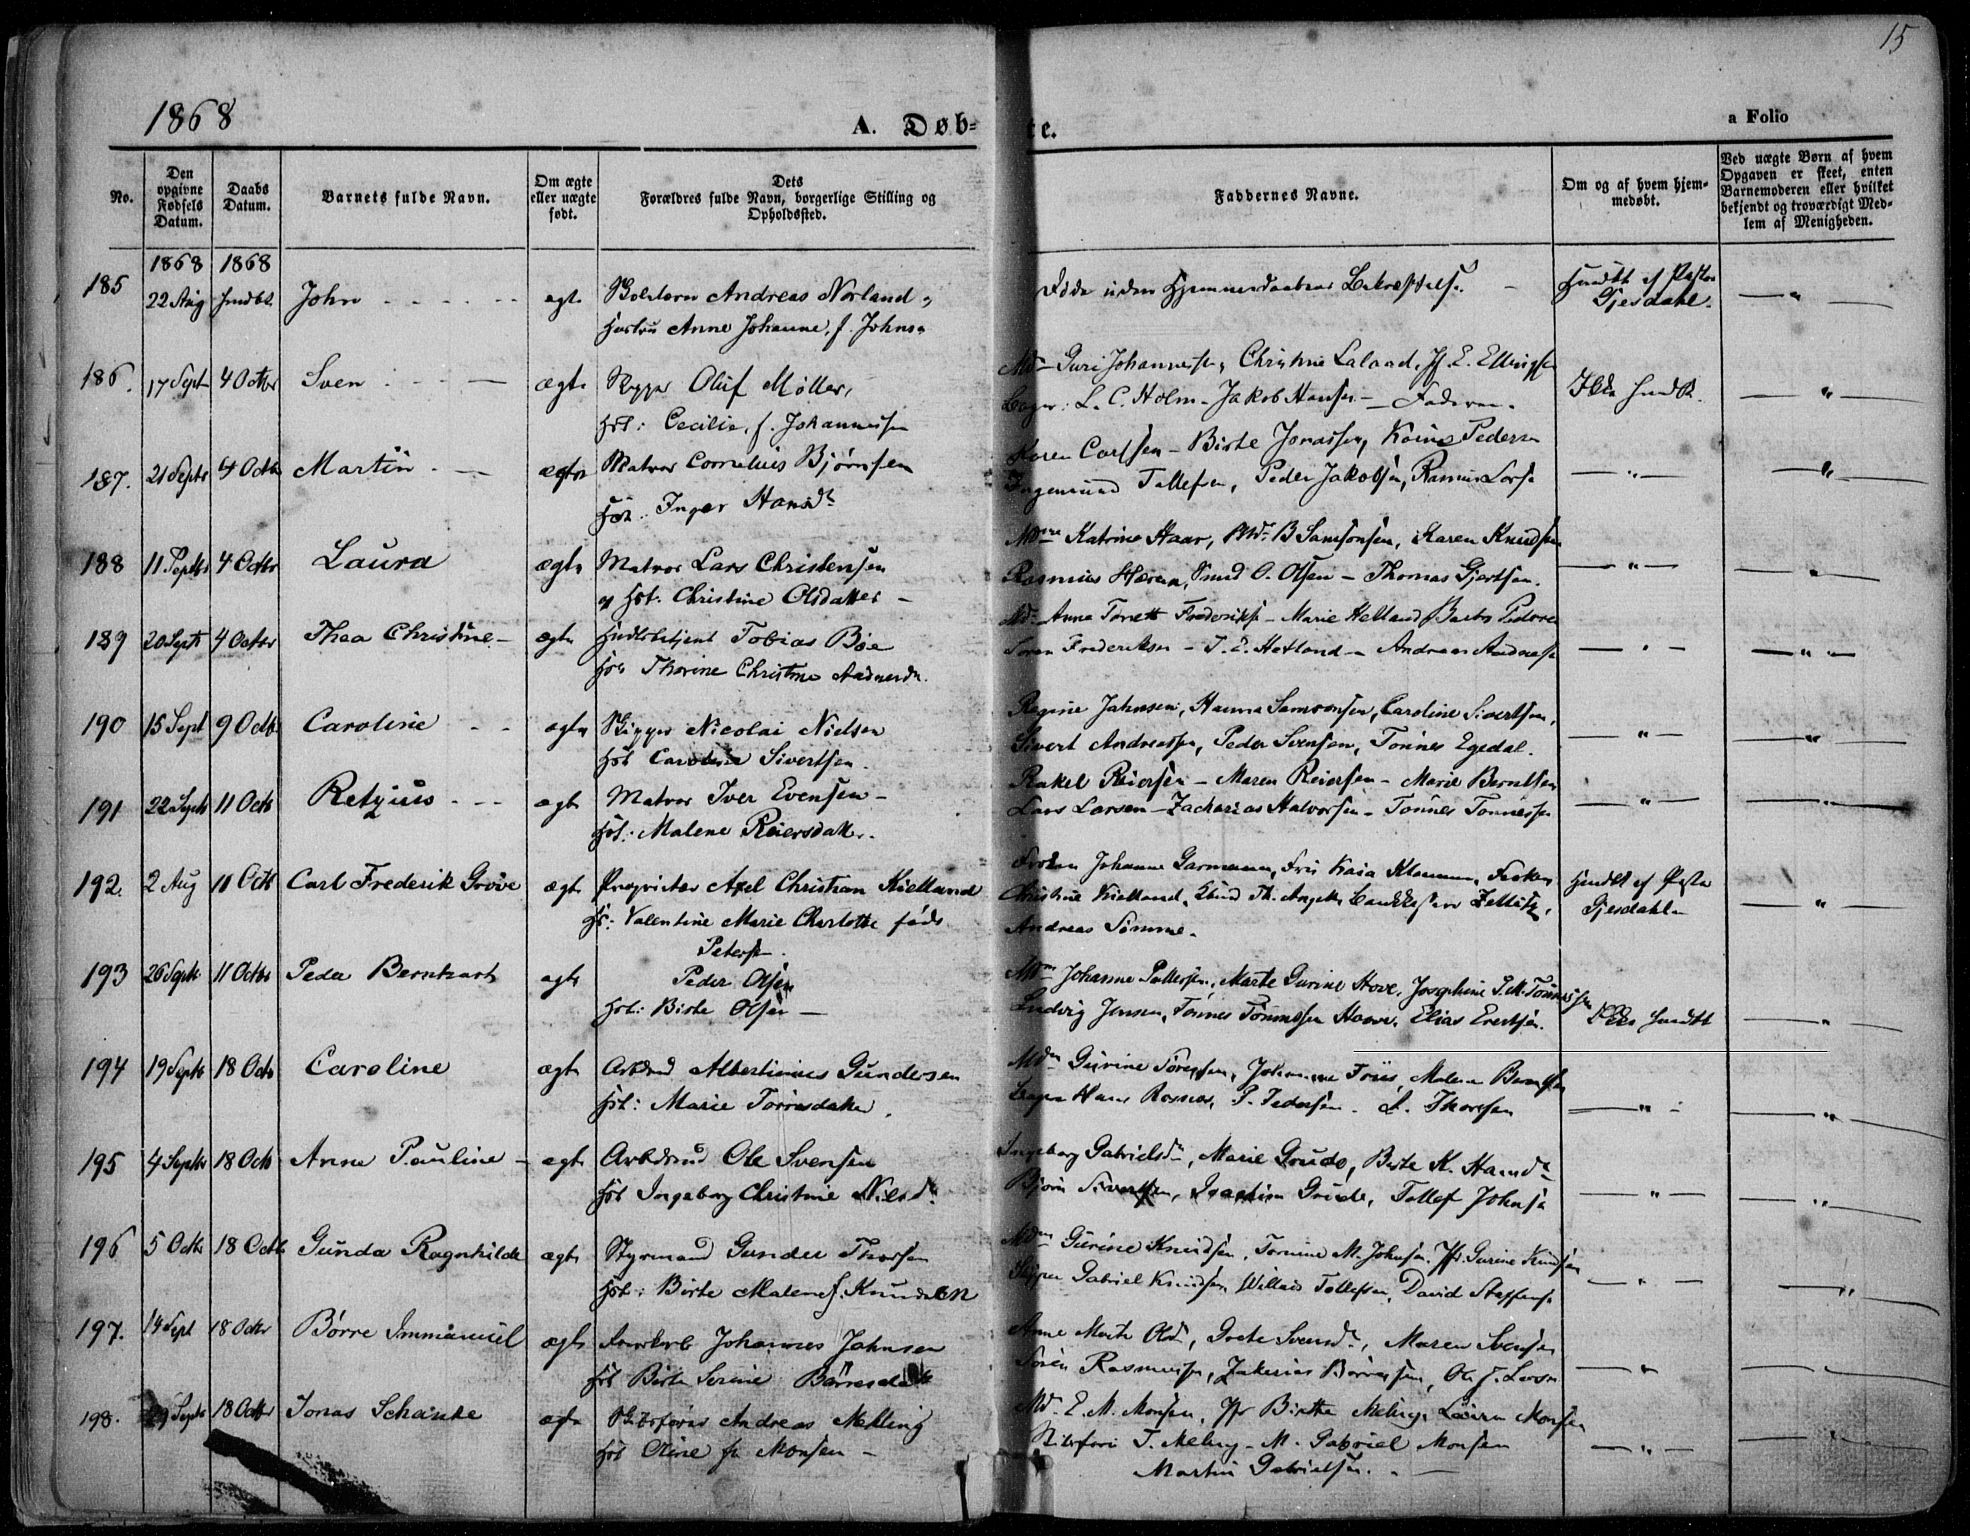 15
1868
A. Døb-
te.
a Folio
No.
Den opgivne Fødsels Datum.
Daabs Datum.
Barnets fulde Navn.
Om ægte eller uægte født.
Dets Forældres fulde Navn, borgerlige Stilling og Opholdssted.
Faddernes Navne.
Om og af hvem hjemmedøbt.
Ved uægte Børn af hvem Opgaven er skeet, enten Barnemoderen eller hvilket bekjendt og troværdigt Medlem af Menigheden.
1868 1868
185 22 Aug John ægte Andreas Norland
Hustru Anne Johanne, f. Johnsen
Døde uden Hjemmedaabens Bekræftelse
Hmdbt af Pastor
Gjesdahl
186. 17 Sept 4 Octbr Sven ægte Skipper Oluf Møller,
Hst: Cecilie, f. Johannessen
Guri Johannessen, Christine Lalaad, E. Ellingsen
L. C. Holm - Jakob Hansen - Faderen.
Ikke Hmdbt.
187. 21 Septr 4 Octbr Martin ægte Matros Cornelius Bjørnsen
Hst: Inger Hansdr
Karen Carlsen - Birte Jonassen, Pedersen
Ingemund Tollefsen, Peder Jakobsen, Rasmus
188 11 Septbr 4 Octbr Laura ægte Matros Lars Christensen
og Hst. Christine Olsdatter -
Mdme Katrine Haar, Md. B Samsonsen, Karen Knudsen
Rasmus O. Olsen - Thomas Gjertsen.
189 20 Septb 4 Octbr Thea Christine - ægte Tobias Bøe
Hst Thorine Christine Aadnesdr.
Md. Anna Fredriksen - Marie Helland
Søren Frederiksen - T. E. Hetland - Andreas Aadnesen
190 15 Sept 9 Octb. Caroline ægte Skipper Nicolai Nielsen
Hst Caroline Sivertsen.
Regine Jahnsen, Hanna Samsonsen, Caroline Sivertsen,
Sivert Andreassen, Peder Svensen, Tønnes Egedal.
191 22 Septb 11 Octb Retzius ægte Matros Iver Evensen -
Hst: Malene Reiersdatter.
Rakel Reiersen - Maren Reiersen - Marie Berntsen
Lars Larsen - Zacharias Halvorsen - Tønnes Tønnessen
192. 2 Aug 11 Octb Carl Frederik Grove ægte Proprietær Axel Christian Kielland
H: Valentine Marie Charlotte født
Petersen.
Frøken Johanne Garmann, Fru Kaia Frøken
Christine Kielland, Th. Zetlitz,
Andreas Sømme.
Hmdbt af Pastor
Gjesdahl
193 26 Septb 11 Octbr Peder Bernhart ægte Peder Olsen
Hst: Birte Olsen -
Mdm Johanne Pallesen, Marte Gurine Hove, Josephine P. M. Tønnessen
Ludvig Jensen, Tønnes Tønnessen Haave, Elias Evertsen.
Ikke Hmdbt
194 19 Septb 18 Octb Caroline ægte Arbdmd Albertinius Gundersen
Hst: Marie Torresdatter.
Mdm Gurine Sørensen, Johanne Friis, Malene Berntsen
Hans Rosnes, P. Pedersen. L. Thorsen
195 4 Septbr 18 Octb Anne Pauline - ægte Arbdmd Ole Svensen
Hst Ingeborg Christine Nielsdr.
Ingeborg Gabrielsdr, Marie Grude, Berte K. Hansdr
Bjørn Sivertsen, Joachim Grude, Tollef Johnsen
196 5 Octb 18 Octb Gunda Ragnhilde ægte Styrmand Gunder Thorsen
Hst: Birte Malene f. Knudsen
Mdm Gurine Knudsen, Tomine M. Johnsen. Jfr. Gurine Knudsen
Skipper Gabriel Knudsen, Willads Tollefsen, David Staffensen
197. 14 Sept 18 Octbr Børre Immanuel ægte Johannes Jahnsen
Hst Birte Serine Børresdatter
Anne Marte Olsdr, Grete Svensdr, Maren Svensen
Søren Rasmussen, Zakarias Børresen, Ole J. Larsen
198. 29 Septb 18 Octbr Jonas Schanke ægte Skibsfører Andreas Melling
Hst Oline f. Monsen -
Md. E. M. Monsen, Jfr Birthe Meling, Laura Monsen
Skibsfører T. Meling - M. Gabriel Monsen
Martin Gabrielsen.